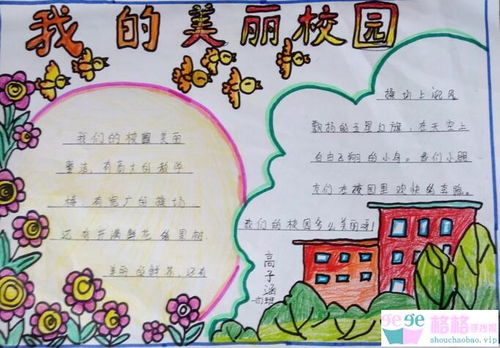 我的美丽校园
我们的校园美丽
整洁,有高大的教学
楼,有宽广的操场
还有开满鲜花
美丽的鲜花,还有
操场上
飘扬的五星红旗,在天空上
自由飞翔的小鸟。我们小朋
友们在校园里欢快的
我们的校园多么美丽
高子涵
gege
格格手抄报
shouchaobao.vip